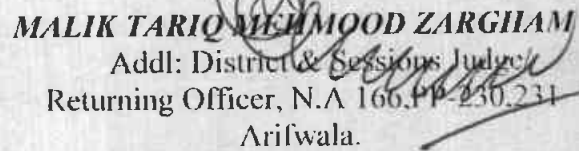 MALIK TARIQ MEHMOOD ZARGHAM
Addl: District & Sessions Judge/
Returning Officer, N.A 166,PP-230,231
Arifwala.